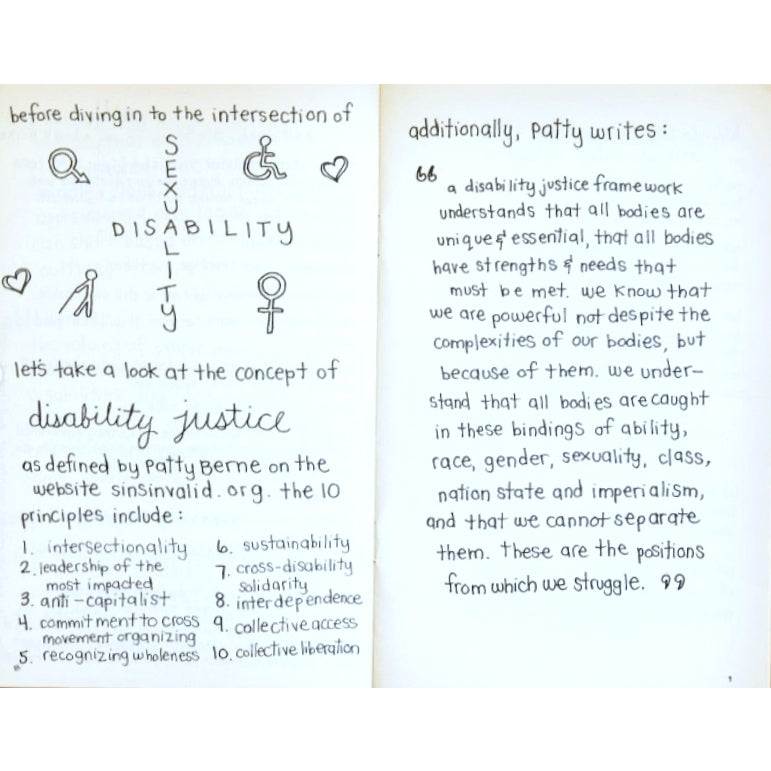 before diving in to the intersection of
SEXUALITY
DISABILITY
let's take a look at the concept of
disability justice
as defined by Patty Berne on the
website sinsinvalid.org. the 10
principles include:
1. intersectionality
2. leadership of the
most impacted
3. anti-capitalist
4. commitment to cross
movement organizing
5. recognizing wholeness
6. sustainability
7. cross-disability
solidarity
8. interdependence
9. collective access
10. collective liberation
additionally, Patty writes:
“ a disability justice framework
understands that all bodies are
unique & essential, that all bodies
have strengths & needs that
must be met. we know that
we are powerful not despite the
complexities of our bodies, but
because of them. we under-
stand that all bodies are caught
in these bindings of ability,
race, gender, sexuality, class,
nation state and imperialism,
and that we cannot separate
them. these are the positions
from which we struggle. ”